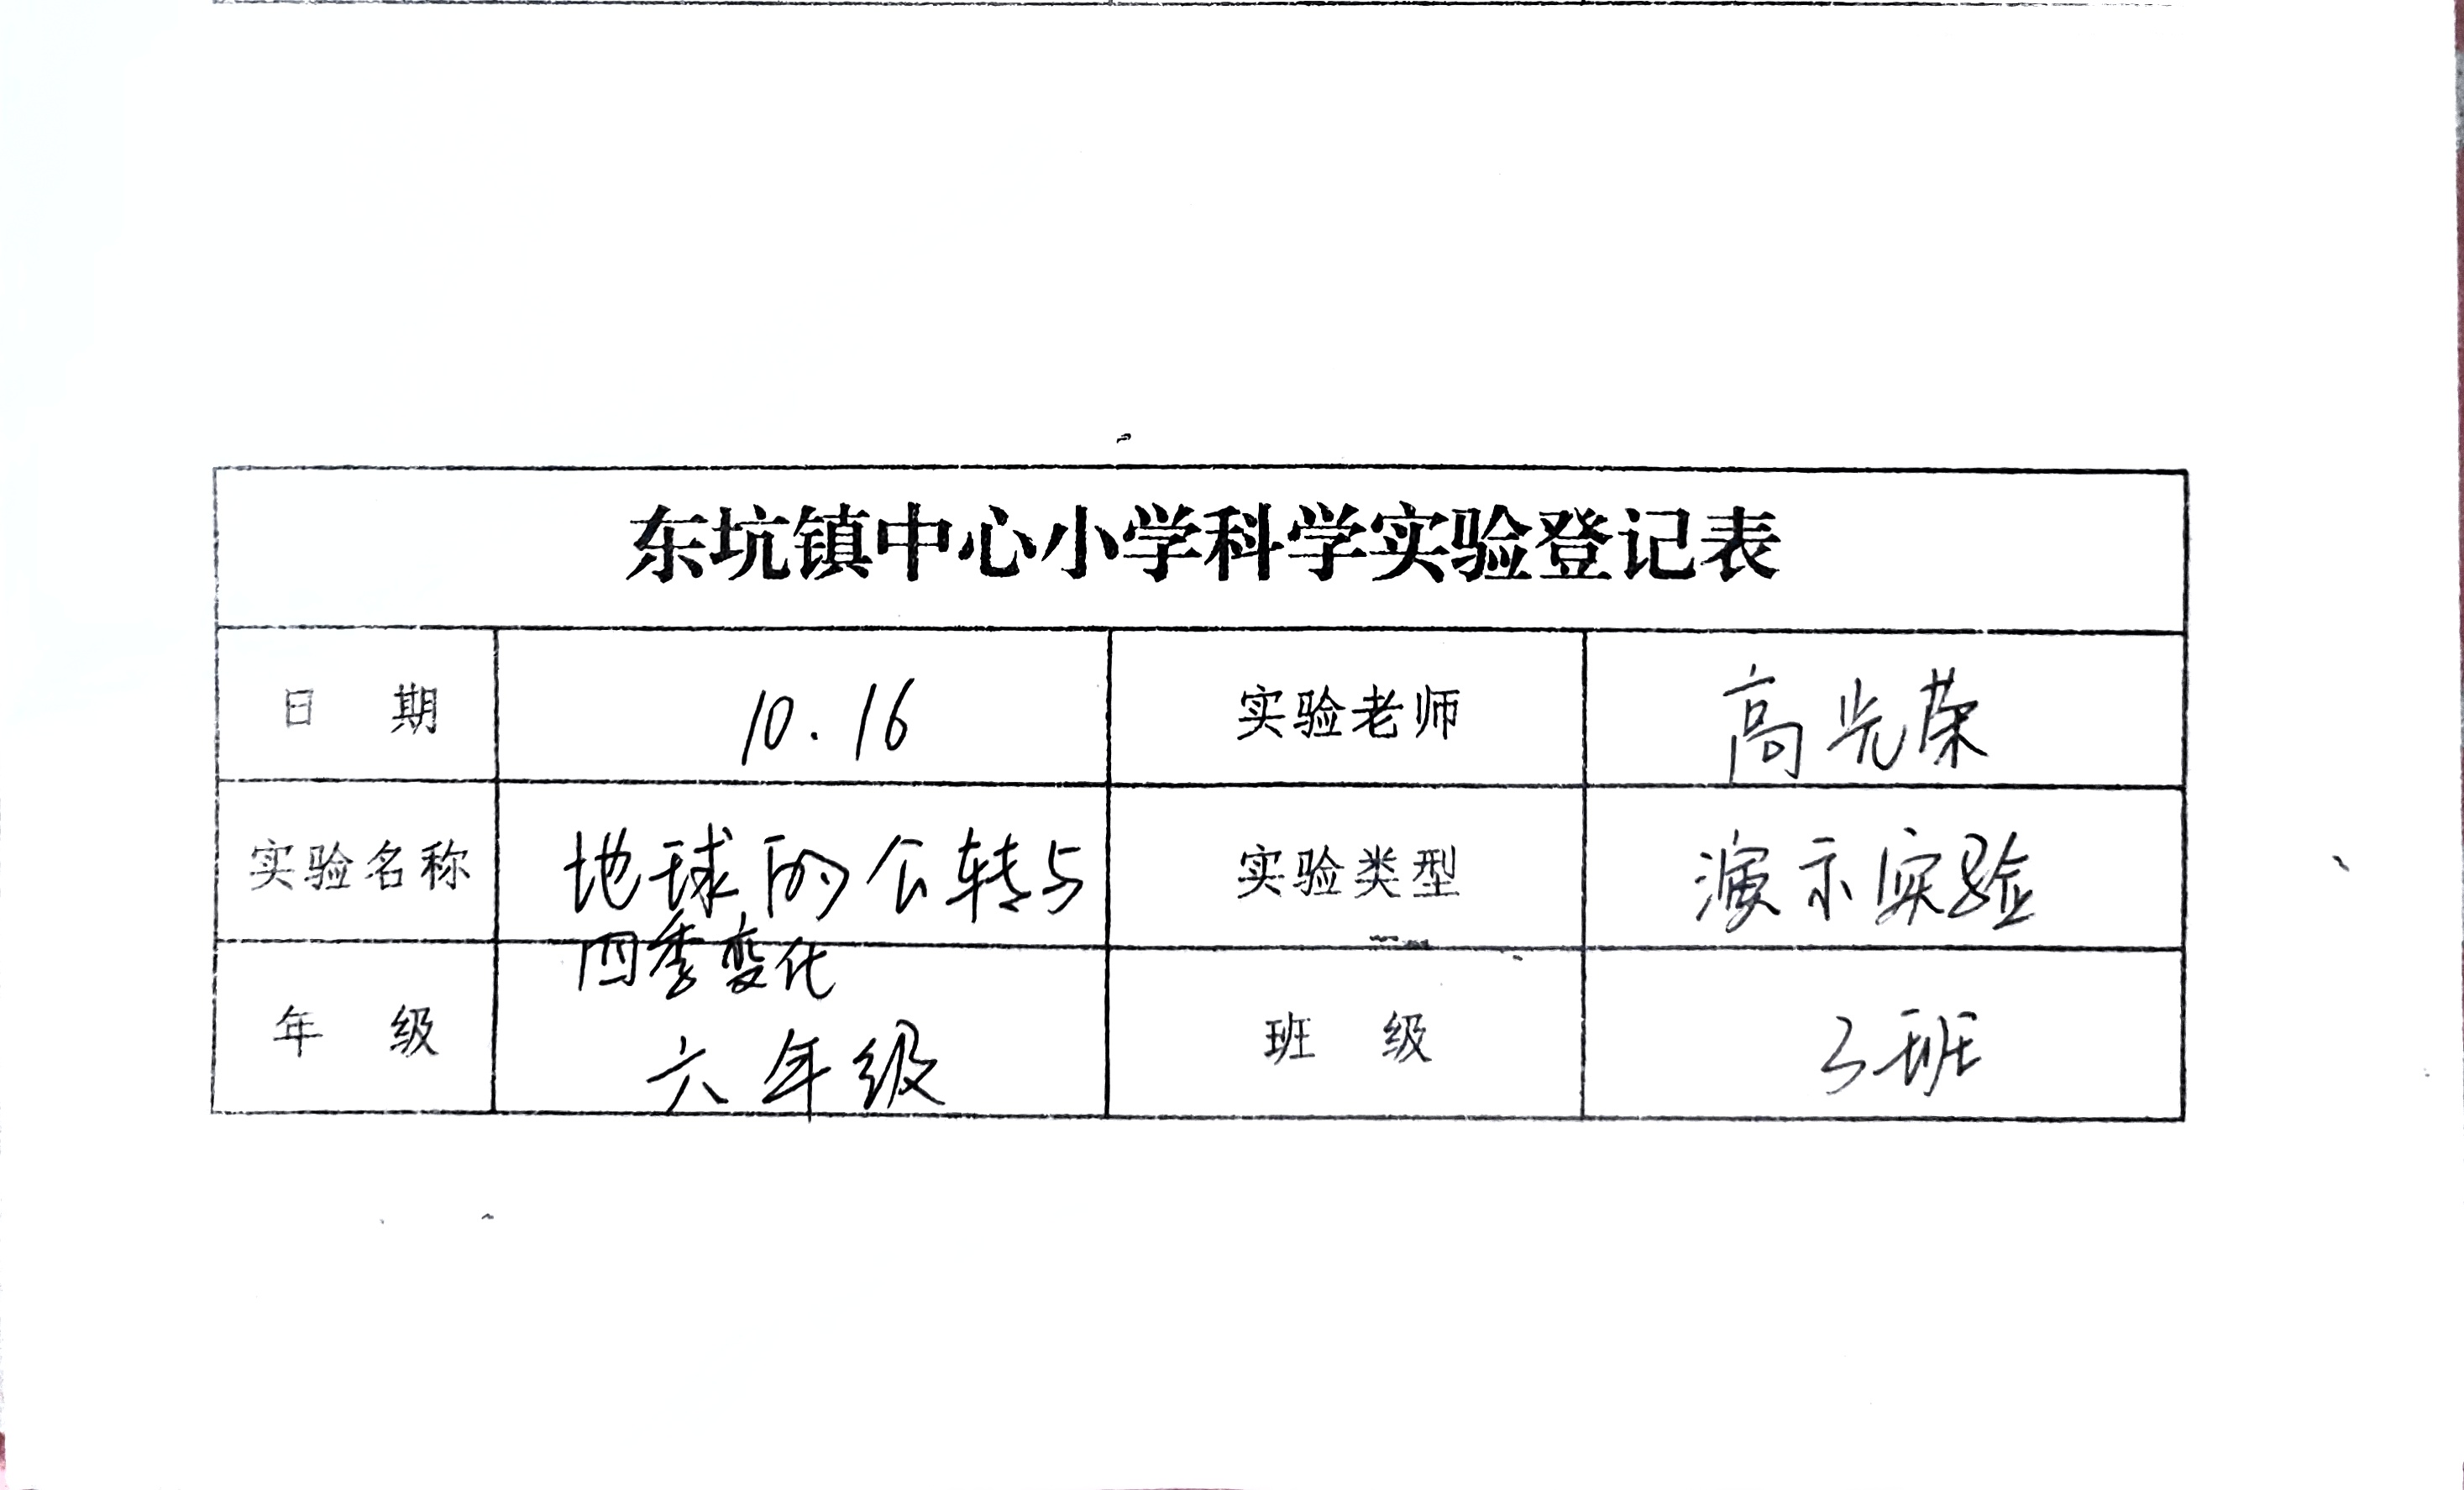 东坑镇中心小学科学实验登记表
日 期 10.16 实验老师 高光荣
实验名称 地球的公转与 实验类型 演示实验
四季变化
年 级 六年级 班 级 3班